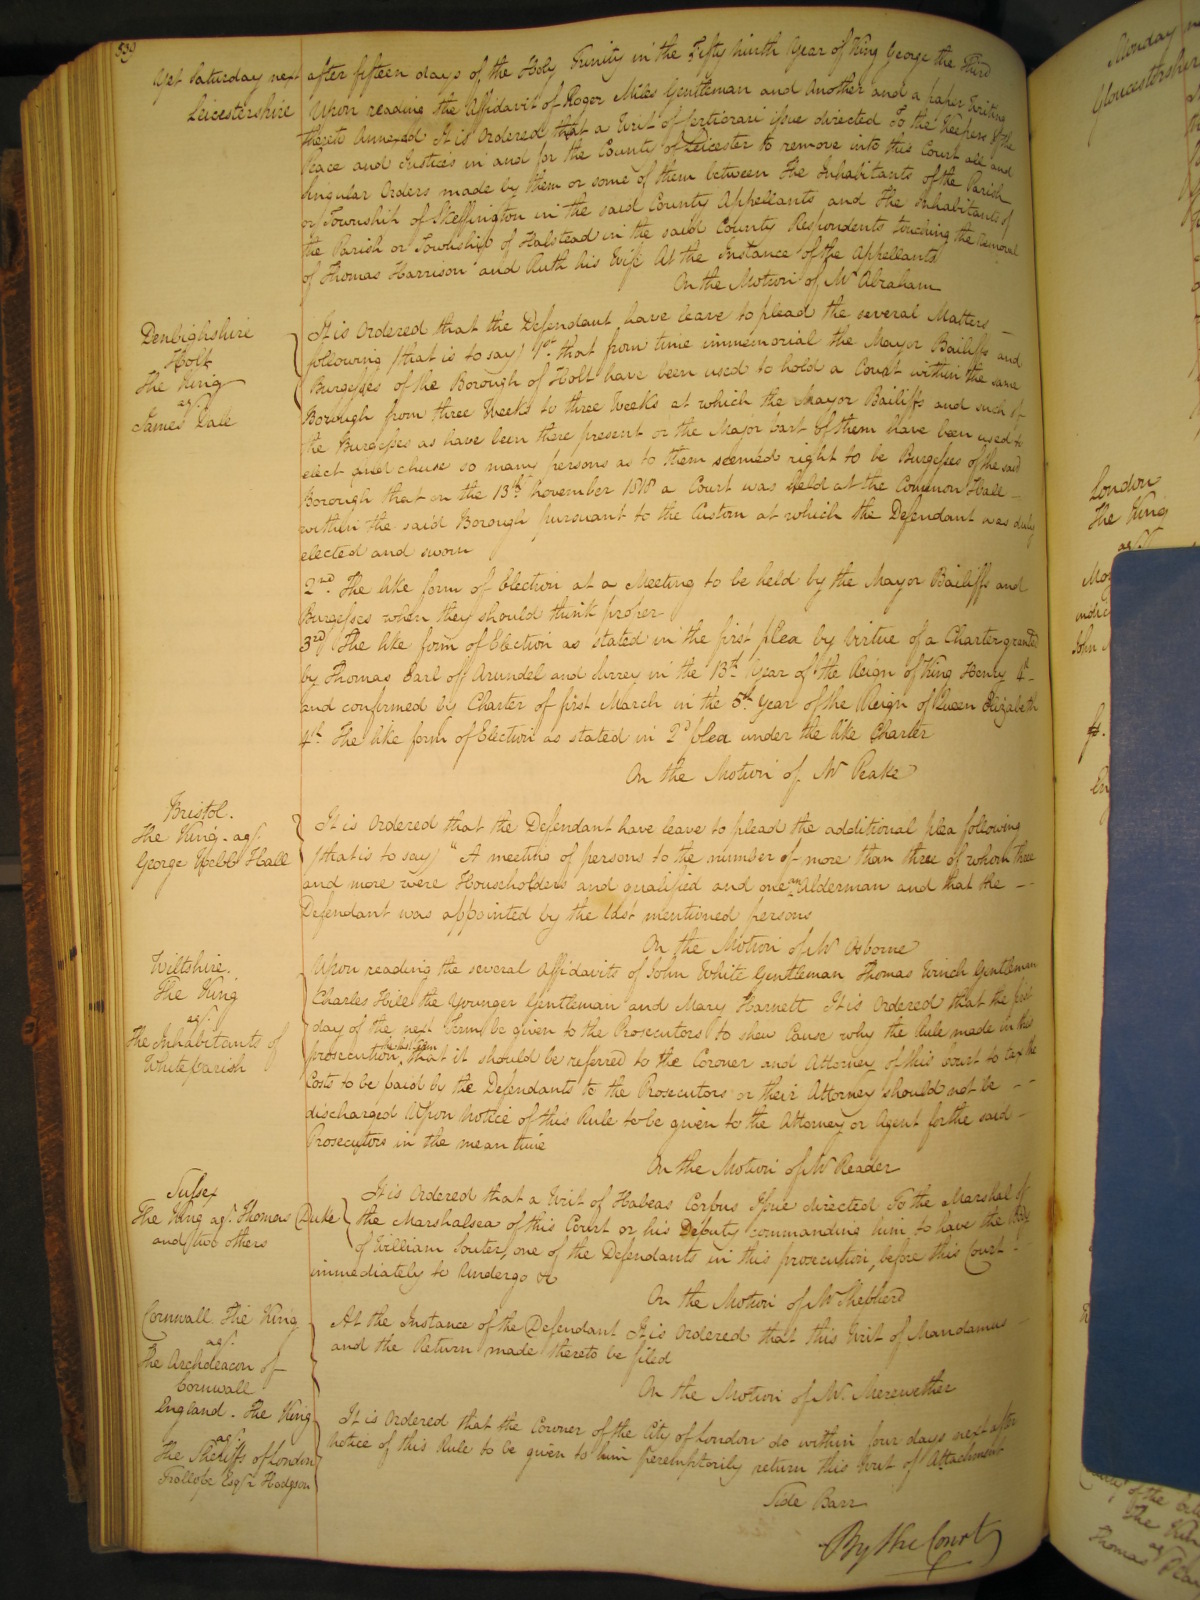 539
Yet Saturday next after fifteen days of the Holy Trinity in the Fifty Ninth Year of King George the Third
Leicestershire Upon reading the Affidavit of Roger Miles Gentleman and Another and a paper Writing
thereto Annexed It is Ordered that a Writ of Certiorari issue directed To the Keepers of the
Peace and Justices in and for the County of Leicester to remove into this Court all and
singular Orders made by them or some of them between The Inhabitants of the Parish
or Township of Skeffington in the said County Appellants and the Inhabitants of
the Parish or Township of Halstead in the said County Respondents touching the Removal
of Thomas Harrison and Ruth his Wife At the Instance of the Appellants
On the Motion of Mr Abraham
Denbighshire
Holt
The King
agt
James Dale
It is Ordered that the Defendant have leave to plead the several Matters
following (that is to say) 1st that from time immemorial the Mayor Bailiffs and
Burgesses of the Borough of Holt have been used to hold a Court within the same
Borough from three Weeks to three Weeks at which the Mayor Bailiffs and such of
the Burgesses as have been there present or the Major part of them have been used to
elect and chuse so many persons as to them seemed right to be Burgesses of the said
Borough that on the 13th November 1818 a Court was held at the Common Hall
within the said Borough pursuant to the Custom at which the Defendant was duly
elected and sworn
2nd. The like form of Election at a Meeting to be held by the Mayor Bailiffs and
Burgesses when they should think proper
3rd The like form of Election as stated in the first plea by Virtue of a Charter granted
by Thomas Earl of Arundel and Surrey in the 13th Year of the Reign of King Henry 4th
and confirmed by Charter of first March in the 5th Year of the Reign of Queen Elizabeth
4th The like form of Election as stated in 2d plea under the like Charter
On the Motion of Mr Peake
Bristol.
The King agt.
George Webb Hall
It is Ordered that the Defendant have leave to plead the additional plea following
(that is to say) "A meeting of persons to the number of more than three of whom three
and more were Householders and qualified and one an Alderman and that the
Defendant was appointed by the last mentioned persons
On the Motion of Mr Osborne
Wiltshire.
The King
agt.
The Inhabitants of
Whiteparish
Upon reading the several Affidavits of John White Gentleman Thomas Winch Gentleman
Charles Hill the Younger Gentleman and Mary Harnett It is Ordered that the first
day of the next Term be given to the Prosecutors to shew Cause why the Rule made in this
prosecution the last Term that it should be referred to the Coroner and Attorney of this Court to tax the
Costs to be paid by the Defendants to the Prosecutors or their Attorney should not be
discharged Upon Notice of this Rule to be given to the Attorney or Agent for the said
Prosecutors in the mean time
On the Motion of Mr Reader
Sussex
The King agt. Thomas Duke
and two others
It is Ordered that a Writ of Habeas Corpus Issue directed To the Marshal of
the Marshalsea of this Court or his Deputy commanding him to have the Body
of William Souter, one of the Defendants in this prosecution, before this Court
immediately to Undergo &c
On the Motion of Mr Shepherd
Cornwall The King
agt.
The Archdeacon of
Cornwall
At the Instance of the Defendant It is Ordered that this Writ of Mandamus
and the Return made thereto be filed
On the Motion of Mr. Merewether
England. The King
agt.
The Sheriffs of London
Trollope Esqr. Hodgson
It is Ordered that the Coroner of the City of London do within four days next after
Notice of this Rule to be given to him peremptorily return this Writ of Attachment
Side Barr
By the Court
Monday
Gloucestershire
London
The King
agt
The King
agt
Thomas